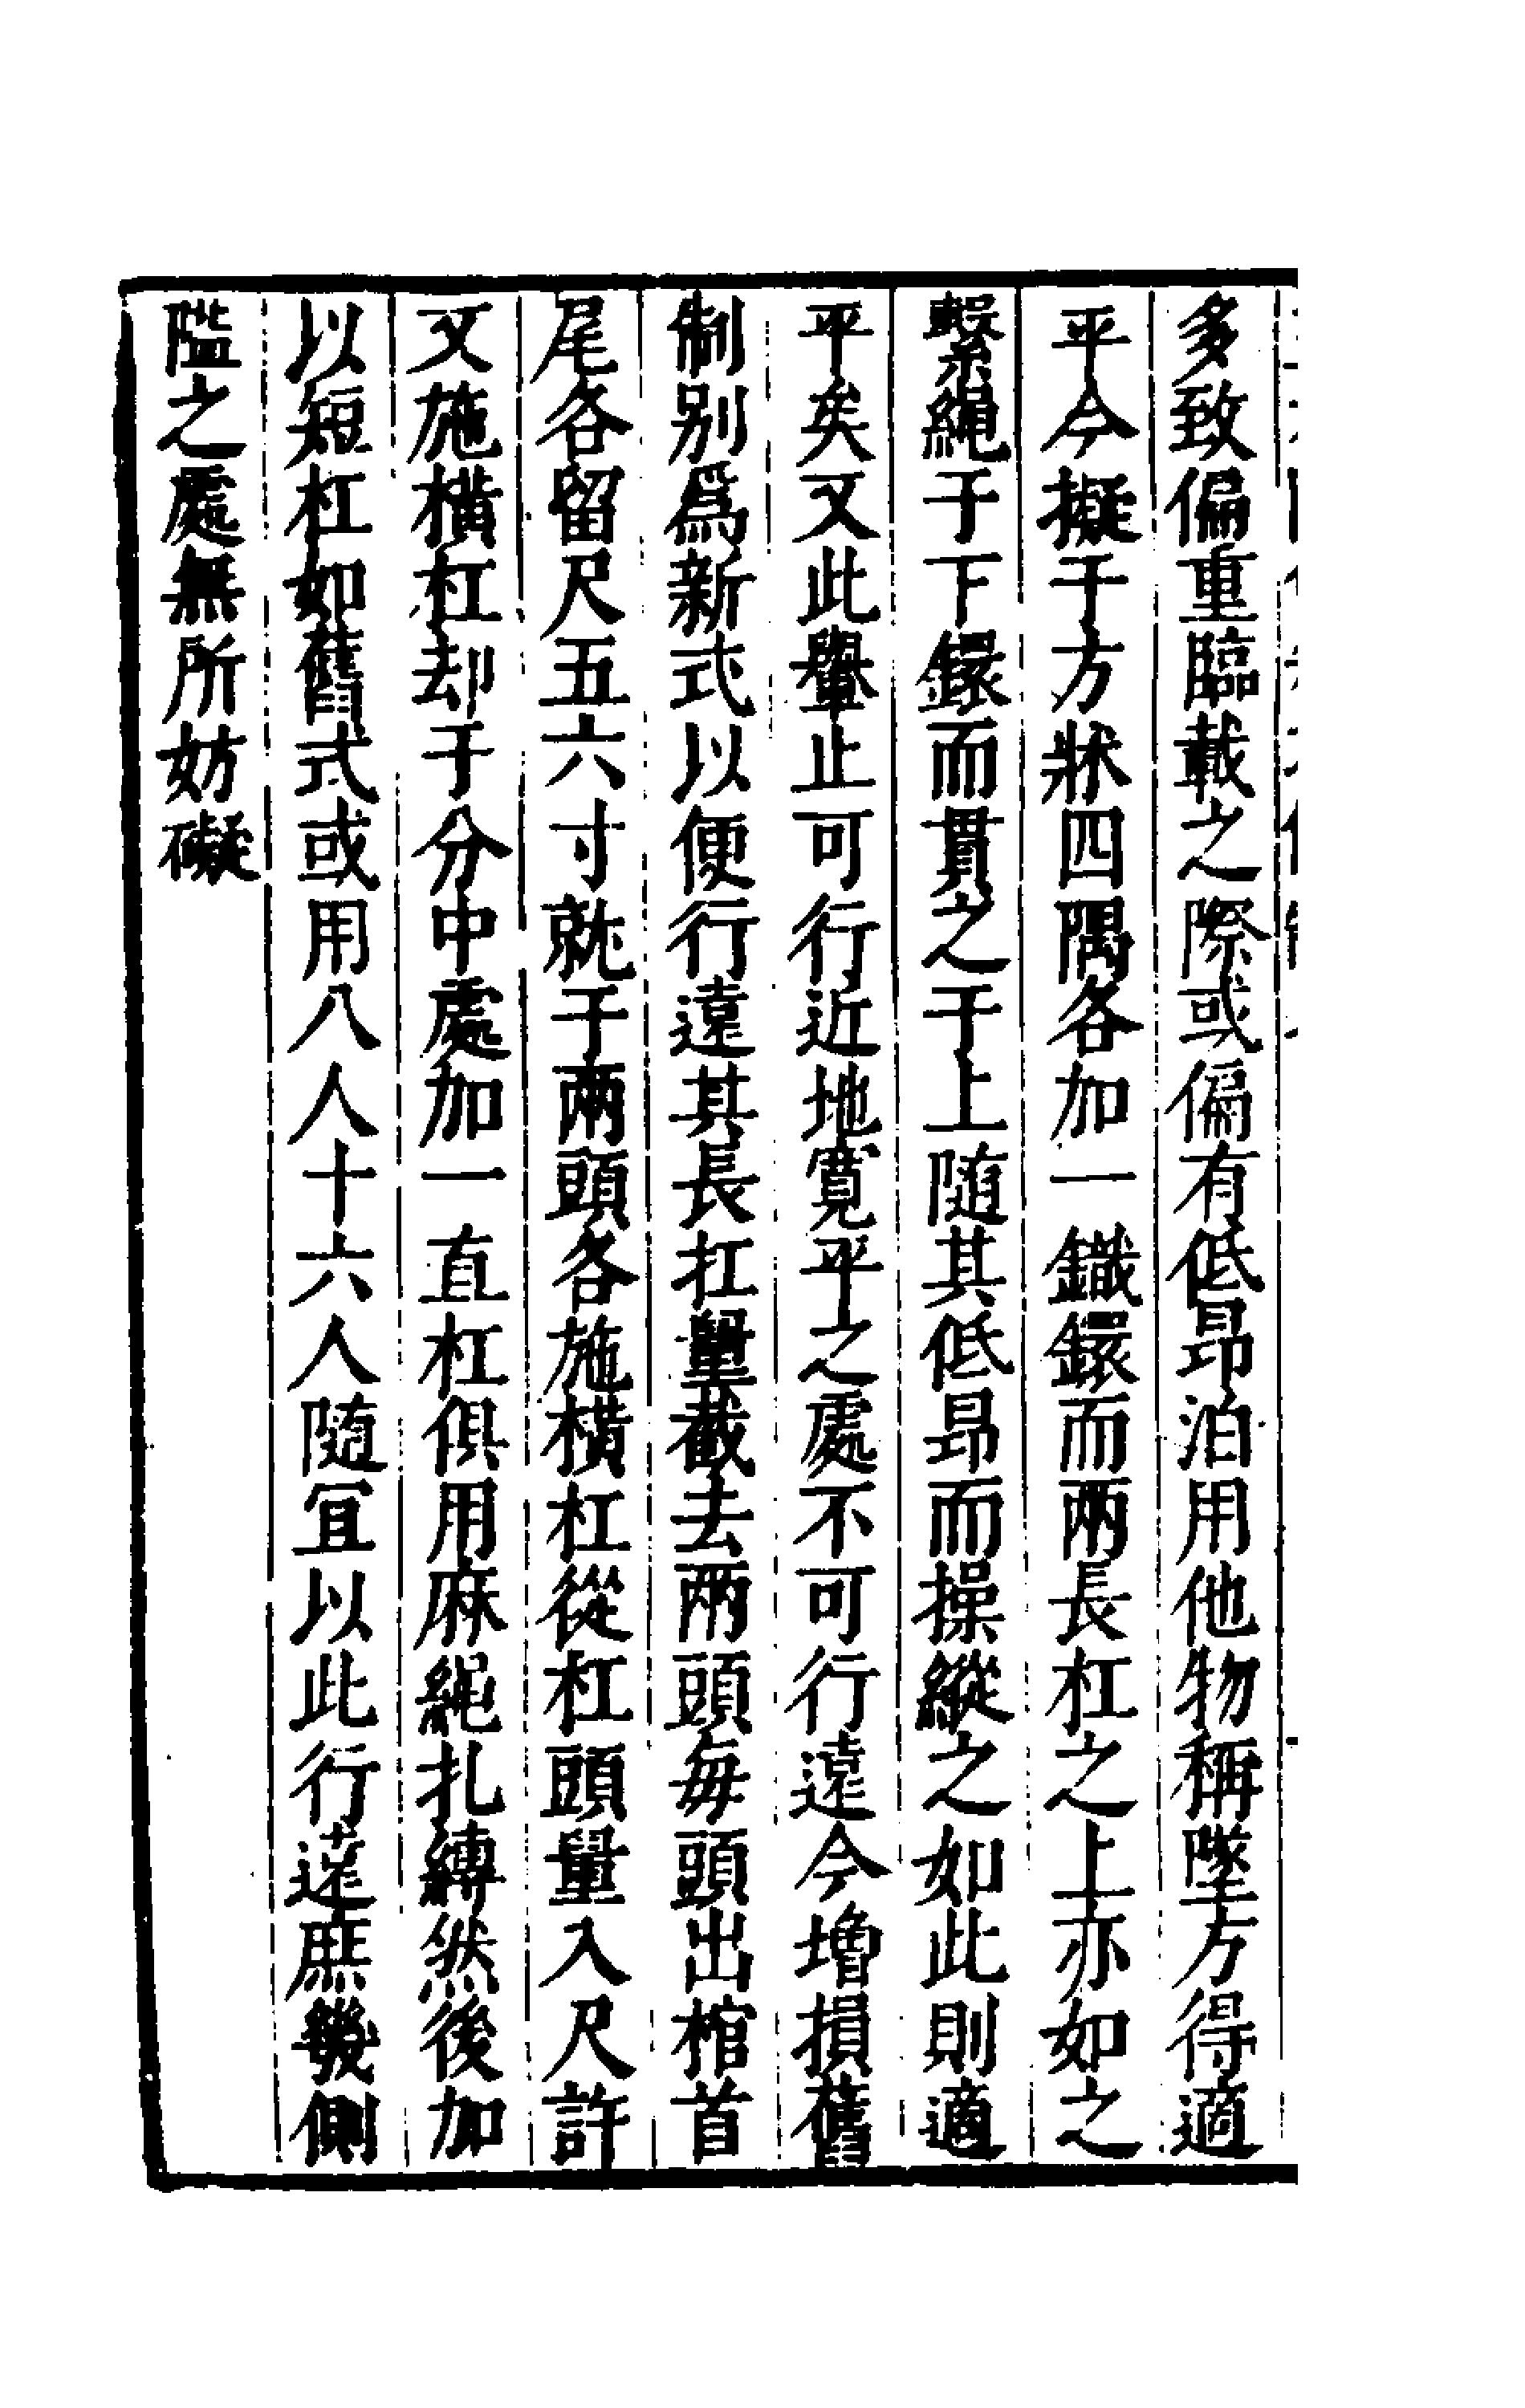 多致偏重臨載之際或偏有低昻泊用他物稱墜方得適
平今擬于方牀四隅各加一鐵鐶而兩長杠之上亦如之
繫繩于下鐶而貫之于上随其低昻而操縱之如此則適
平矣又此轝止可行近地寛平之處不可行遠今增損舊
制别爲新式以便行遠其長扛量截去兩頭毎頭出棺首
尾各留尺五六寸就于兩頭各施横杠從杠頭量入尺許
又施横杠却于分中處加一直杠俱用麻繩扎縛然後加
以短杠如舊式或用八人十六人随冝以此行逺庶幾側
隘之處無所妨礙